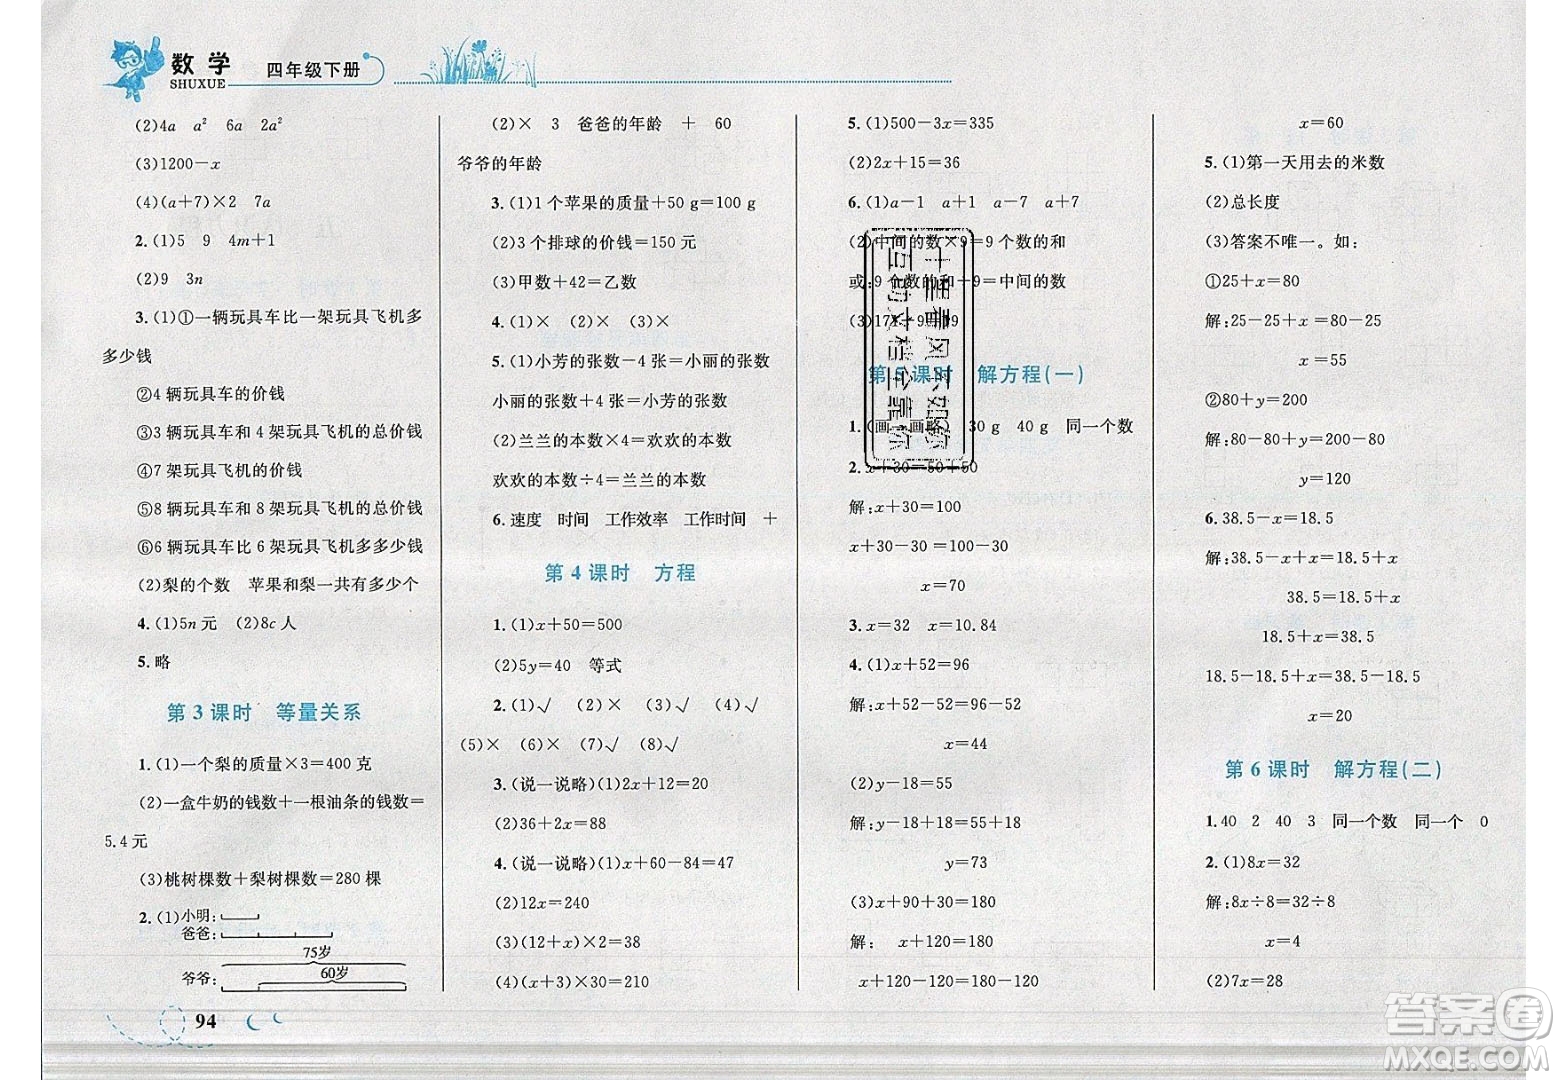 数学
SHUXUE
四年级下册
(2)4a a² 6a 2a²
(3)1200－x
(4)(a＋7)×2 7a
2.(1)5 9 4m＋1
(2)9 3n
3.(1)①一辆玩具车比一架玩具飞机多
多少钱
②4 辆玩具车的价钱
③3 辆玩具车和 4 架玩具飞机的总价钱
④7 架玩具飞机的价钱
⑤8 辆玩具车和 8 架玩具飞机的总价钱
⑥6 辆玩具车比 6 架玩具飞机多多少钱
(2)梨的个数 苹果和梨一共有多少个
4.(1)5n 元 (2)8c 人
5.略
第 3 课时 等量关系
1.(1)一个梨的质量×3＝400 克
(2)一盒牛奶的钱数＋一根油条的钱数＝
5.4 元
(3)桃树棵数＋梨树棵数＝280 棵
2.(1)小明:
爸爸:
75岁
60岁
爷爷:
94
(2)× 3 爸爸的年龄 ＋ 60
爷爷的年龄
3.(1)1 个苹果的质量＋50 g＝100 g
(2)3 个排球的价钱＝150 元
(3)甲数＋42＝乙数
4.(1)× (2)× (3)×
5.(1)小芳的张数－4 张＝小丽的张数
小丽的张数＋4 张＝小芳的张数
(2)兰兰的本数×4＝欢欢的本数
欢欢的本数÷4＝兰兰的本数
6.速度 时间 工作效率 工作时间 ＋
第 4 课时 方程
1.(1)x＋50＝500
(2)5y＝40 等式
2.(1)√ (2)× (3)√ (4)√
(5)× (6)× (7)√ (8)√
3.(说一说略)(1)2x＋12＝20
(2)36＋2x＝88
4.(说一说略)(1)x＋60－84＝47
(2)12x＝240
(3)(12＋x)×2＝38
(4)(x＋3)×30＝210
5.(1)500－3x＝335
(2)2x＋15＝36
6.(1)a－1 a＋1 a－7 a＋7
(2)中间的数×9＝9 个数的和
或:9 个数的和÷9＝中间的数
(3)171÷9＝19
第 5 课时 解方程(一)
1.(画一画略) 30 g 40 g 同一个数
2.x＋30＝50＋50
解:x＋30＝100
x＋30－30＝100－30
x＝70
3.x＝32 x＝10.84
4.(1)x＋52＝96
解:x＋52－52＝96－52
x＝44
(2)y－18＝55
解:y－18＋18＝55＋18
y＝73
(3)x＋90＋30＝180
解: x＋120＝180
x＋120－120＝180－120
x＝60
5.(1)第一天用去的米数
(2)总长度
(3)答案不唯一。如:
①25＋x＝80
解:25－25＋x＝80－25
x＝55
②80＋y＝200
解:80－80＋y＝200－80
y＝120
6.38.5－x＝18.5
解:38.5－x＋x＝18.5＋x
38.5＝18.5＋x
18.5＋x＝38.5
18.5－18.5＋x＝38.5－18.5
x＝20
第 6 课时 解方程(二)
1.40 2 40 3 同一个数 同一个 0
2.(1)8x＝32
解:8x÷8＝32÷8
x＝4
(2)7x＝28
答案圈
MXQE.COM